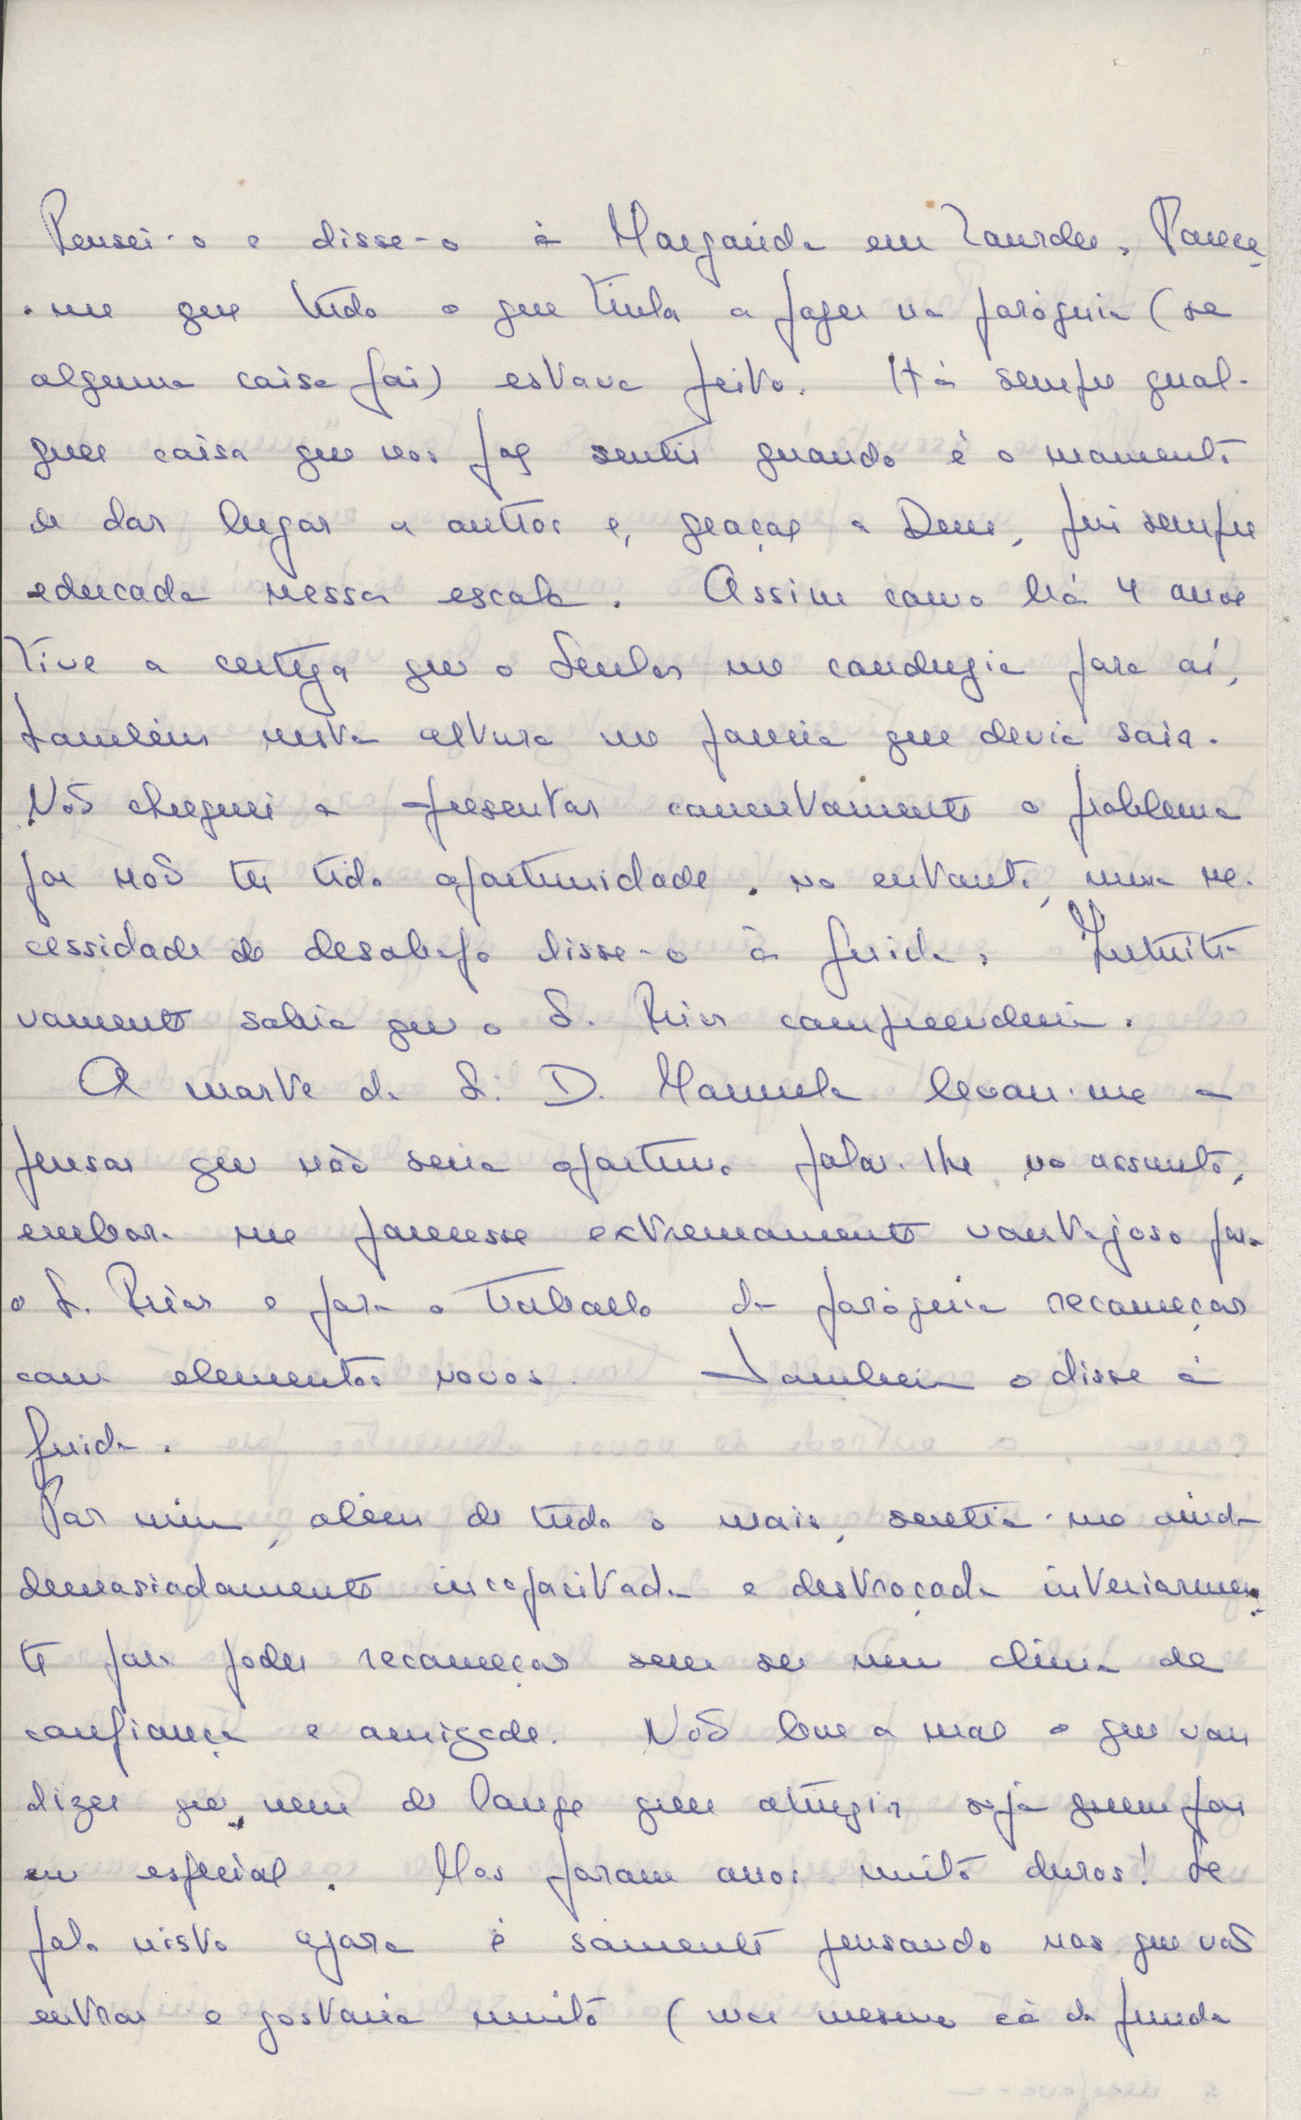 Pensei-o e disse-o à Margarida em Lourdes. Parece
-me que tudo o que tinha a fazer na paróquia (se
alguma coisa foi) estava feito. Há sempre qual-
quer coisa que nos faz sentir quando é o momento
de dar lugar a outros e, graças a Deus, fui sempre
educada nessa escola. Assim como há 4 anos
tive a certeza que o Senhor me conduzia para aí,
também nesta altura me parecia que devia sair.
Não cheguei a apresentar concretamente o problema
por não ter tido oportunidade. no entanto, numa ne-
cessidade de desabafo disse-o à Guida. Intuiti-
vamente sabia que o S. Prior compreenderia.
A morte da S. D. Manuela levou-me a
pensar que não seria oportuno falar-lhe no assunto,
embora me parecesse extremamente vantajoso para
o S. Prior e para o trabalho da paróquia recomeçar
com elementos novos. Também o disse à
Guida.
Por mim, além de tudo o mais, sentia-me ainda
demasiadamente incapacitada e destroçada interiormen-
te para poder recomeçar sem ser num clima de
confiança e amizade. Não leve a mal o que vou
dizer que, nem de longe quer atingir seja quem for
em especial. Mas foram anos muito duros! Se
falo nisto agora é somente pensando nos que vão
entrar e gostaria muito (mas mesmo cá do fundo